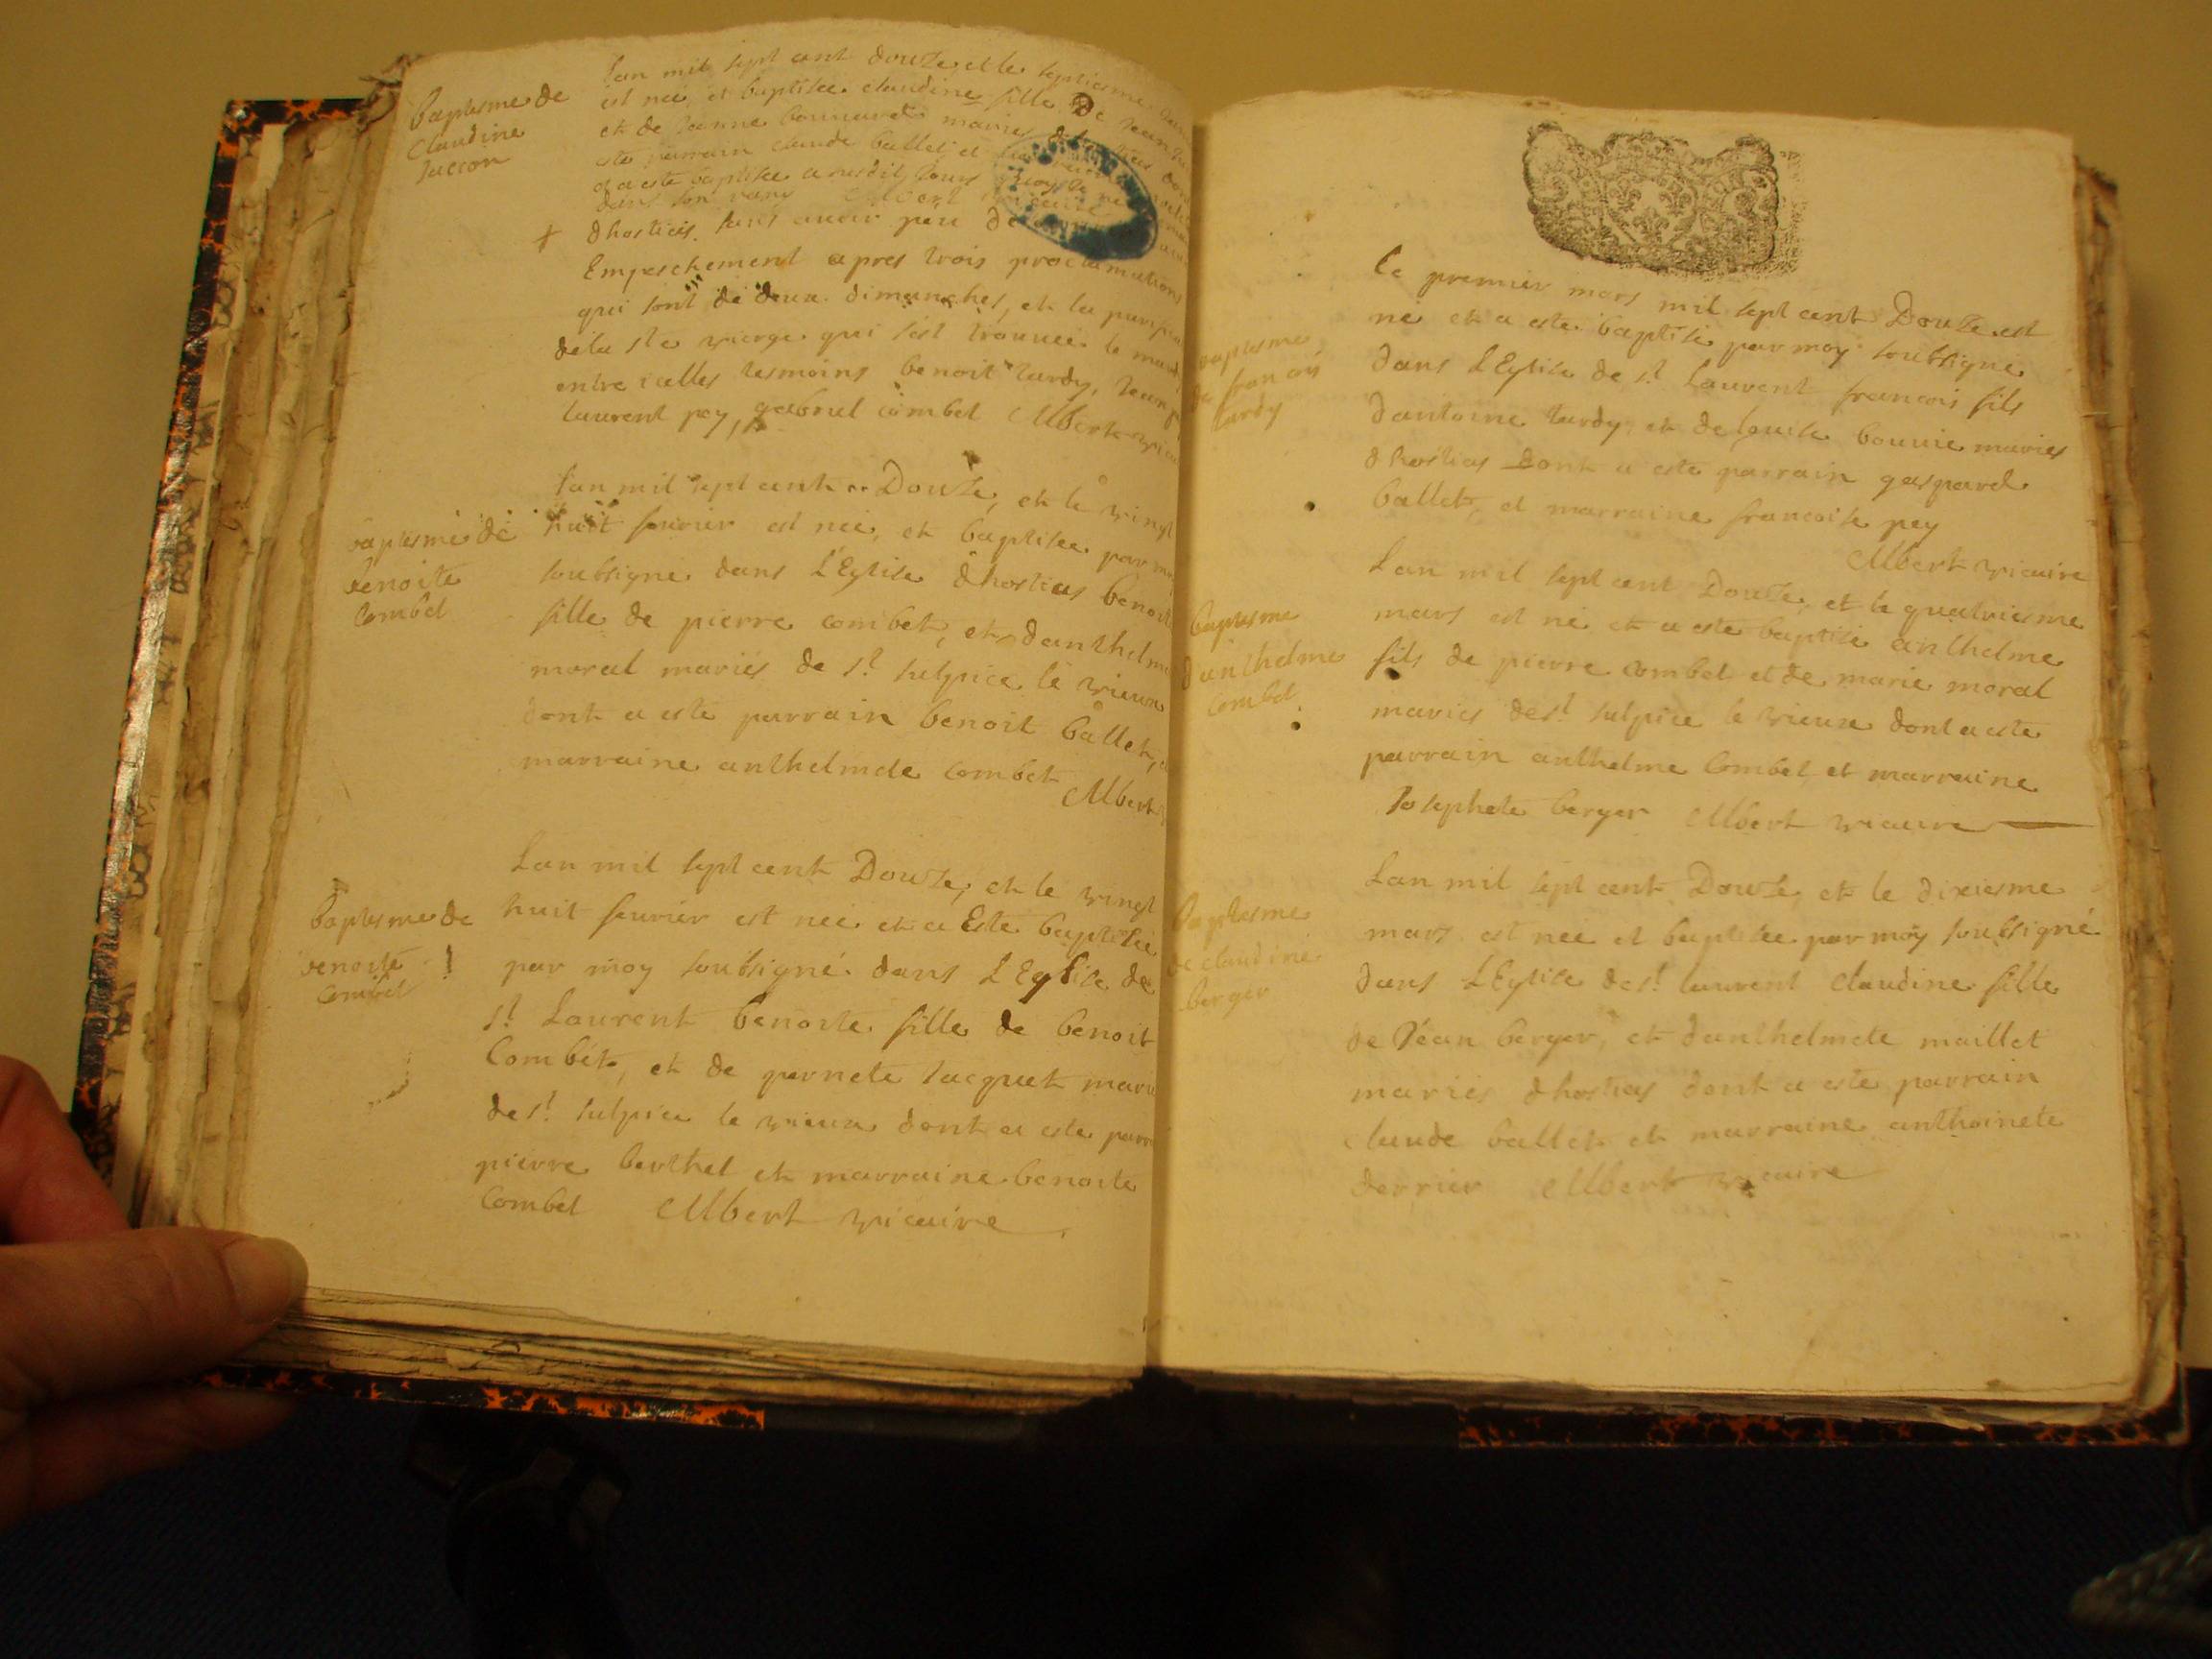 Baptesme de
Claudine
Lan mil sept cent douze et le septiesme
est neé, et baptisée claudine fille De Jean
et de Jeanne bonnard mariés
este parrain claude ballet et
a este baptisée
dans son rang Albert vicaire
+ dhostias sans avoir peu de
Empeschement apres trois proclamations
qui sont de deux dimanches, et la
de la ste vierge qui sest trouvée le
entre icelles tesmoins benoit tardy,
laurent pey, gabriel combet Albert
baptesme de
benoite
Combet
Lan mil sept cent Douze, et le vingt
huit fevrier est neé, et baptisée par moy
soubsigné dans L'Eglise dhostias
fille de pierre combet, et danthelme
moral mariés de st sulpice le vieux
dont a esté parrain benoit ballet,
marraine anthelmete Combet
Albert
Baptesme de
benoite
Combet
Lan mil sept cent Douze, et le vingt
huit fevrier est neé et a Este baptisée
par moy soubsigné dans L'Eglise de
st Laurent benoite fille de benoit
Combet, et de pernete Jacquet
de st sulpice le vieux dont a este
pierre berthet et marraine benoite
Combet Albert vicaire
baptesme
de francois
tardy
Le premier mars mil sept cent Douze est
né et a este baptisé par moy soubsigné
dans L'Eglise de st Laurent francois fils
dantoine tardy, et de louise bouvie mariés
dhostias dont a esté parrain gaspard
ballet, et marraine francoise pey
Albert vicaire
baptesme
danthelme
Combet
Lan mil sept cent Douze, et le quatriesme
mars est né et a este baptisé anthelme
fils de pierre combet et de marie moral
mariés de st sulpice le vieux dont a este
parrain anthelme Combet, et marraine
Josephete berger Albert vicaire
Baptesme
de claudine
berger
Lan mil sept cent Douze, et le dixiesme
mars est neé et baptisée par moy soubsigné
dans L'Eglise de st laurent claudine fille
de Jean berger, et danthelmete maillet
mariés dhostias dont a este parrain
claude ballet et marraine anthoinete
derrier Albert vicaire